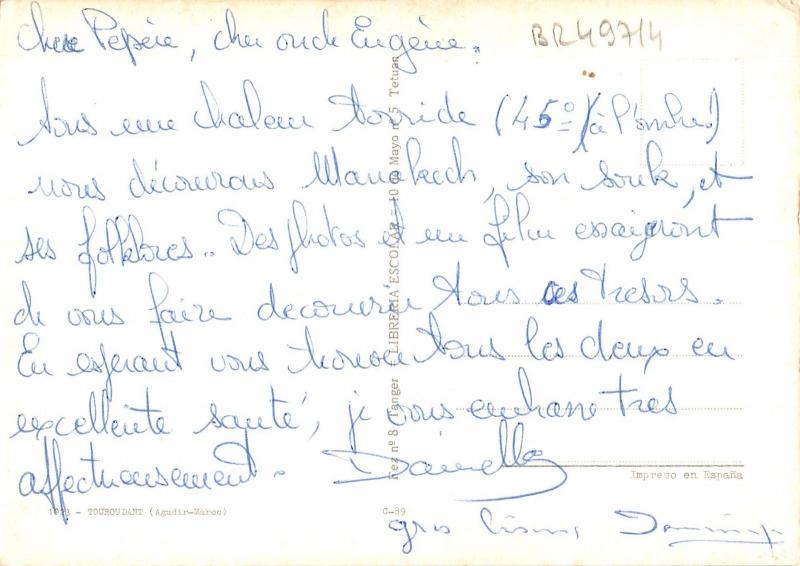 BR497/4
Cher Pépère, cher oncle Eugène.
sous une chaleur torride (45° (à l'ombre!)
nous découvrons Marrakech, son souk, et
ses folklores. Des photos et un film essaieront
de vous faire decouvrir tous ces tresors.
En espérant vous trouver tous les deux en
excellente santé, je vous embrasse tres
affectueusement. Danielle
gros bisous Dominique
Fez nº 8 Tanger LIBRERIA ESCOLAR = 10 de Mayo nº 5 Tetuan
Impreso en España
- TOUROUDANT (Agadir-Maroc)
C-89